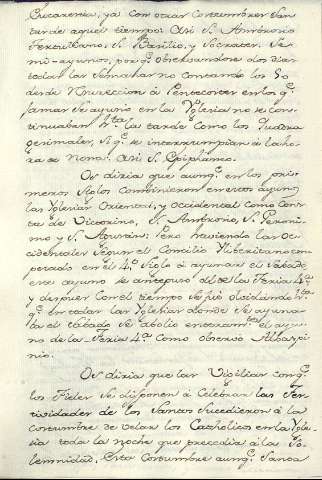 Eucarestia, ya con otras costumbres San
tas de aquel tiempo. Asi S. Ambrosio
Tertuliano, S. Basilio, y Socrates. Se
mi-ayunos, porq.e observandose dos dias
todas las Semanas no contando los Do
de Resurreccion á Pentecostes en los q.e
jamas se ayuno en la Yglesia no se con
tinuaban h.ta la tarde como los Quadra
gesimales, si q.e se interrumpian á la ho
ra de Nona. Asi S. Epiphanio.
Os diria que aunq.e en los pri
meros Siglos combinieron en estos ayunos
las Yglesias Oriental, y Occidental como cons
ta de Victorino, S. Ambrosio, S. Geroni
mo y S. Agustin; Pero haviendo las Oc
cidentales segun el Concilio Yliberitano em
pezado en el 4.º Siglo á ayunar el Sabado
ese ayuno se antepuso al de la Feria 4.ª
y despues con el tiempo se fue olvidando h.ta
q.e en todas las Yglesias donde se ayuna
ba el Sabado se abolio enteram.te el ayu
no de la Feria 4.ª como observó Albaspi
nio.
Os diria que las Vigilias con q.e
los Fieles se disponen á celebrar las Fes
tividades de los Santos sucedieron á la
costumbre de velar los Catholicos en la Ygle
sia toda la noche que precedia á la So
lemnidad. Esta costumbre aunq.e Santa